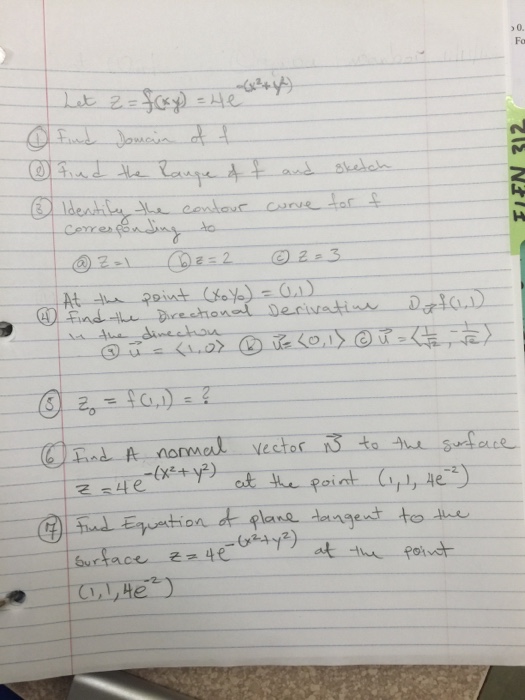 Let z = f(xy) = 4e^-(x²+y²)
① Find Domain of f
② Find the Range of f and sketch
③ Identify the contour curve for f
corresponding to
ⓐ z=1 ⓑ z=2 ⓒ z=3
At the point (x₀y₀) = (1,1)
④ Find the Directional Derivative D_u⃗ f(1,1)
in the direction
ⓐ u⃗ = <1,0> ⓑ u⃗= <0,1> ⓒ u⃗ = <1/√2, -1/√2>
⑤ z₀ = f(1,1) = ?
⑥ Find A normal vector n⃗ to the surface
z = 4e^-(x²+y²) at the point (1,1,4e^-2)
⑦ Find Equation of plane tangent to the
surface z = 4e^-(x²+y²) at the point
(1,1,4e^-2)
50.
Fo
312